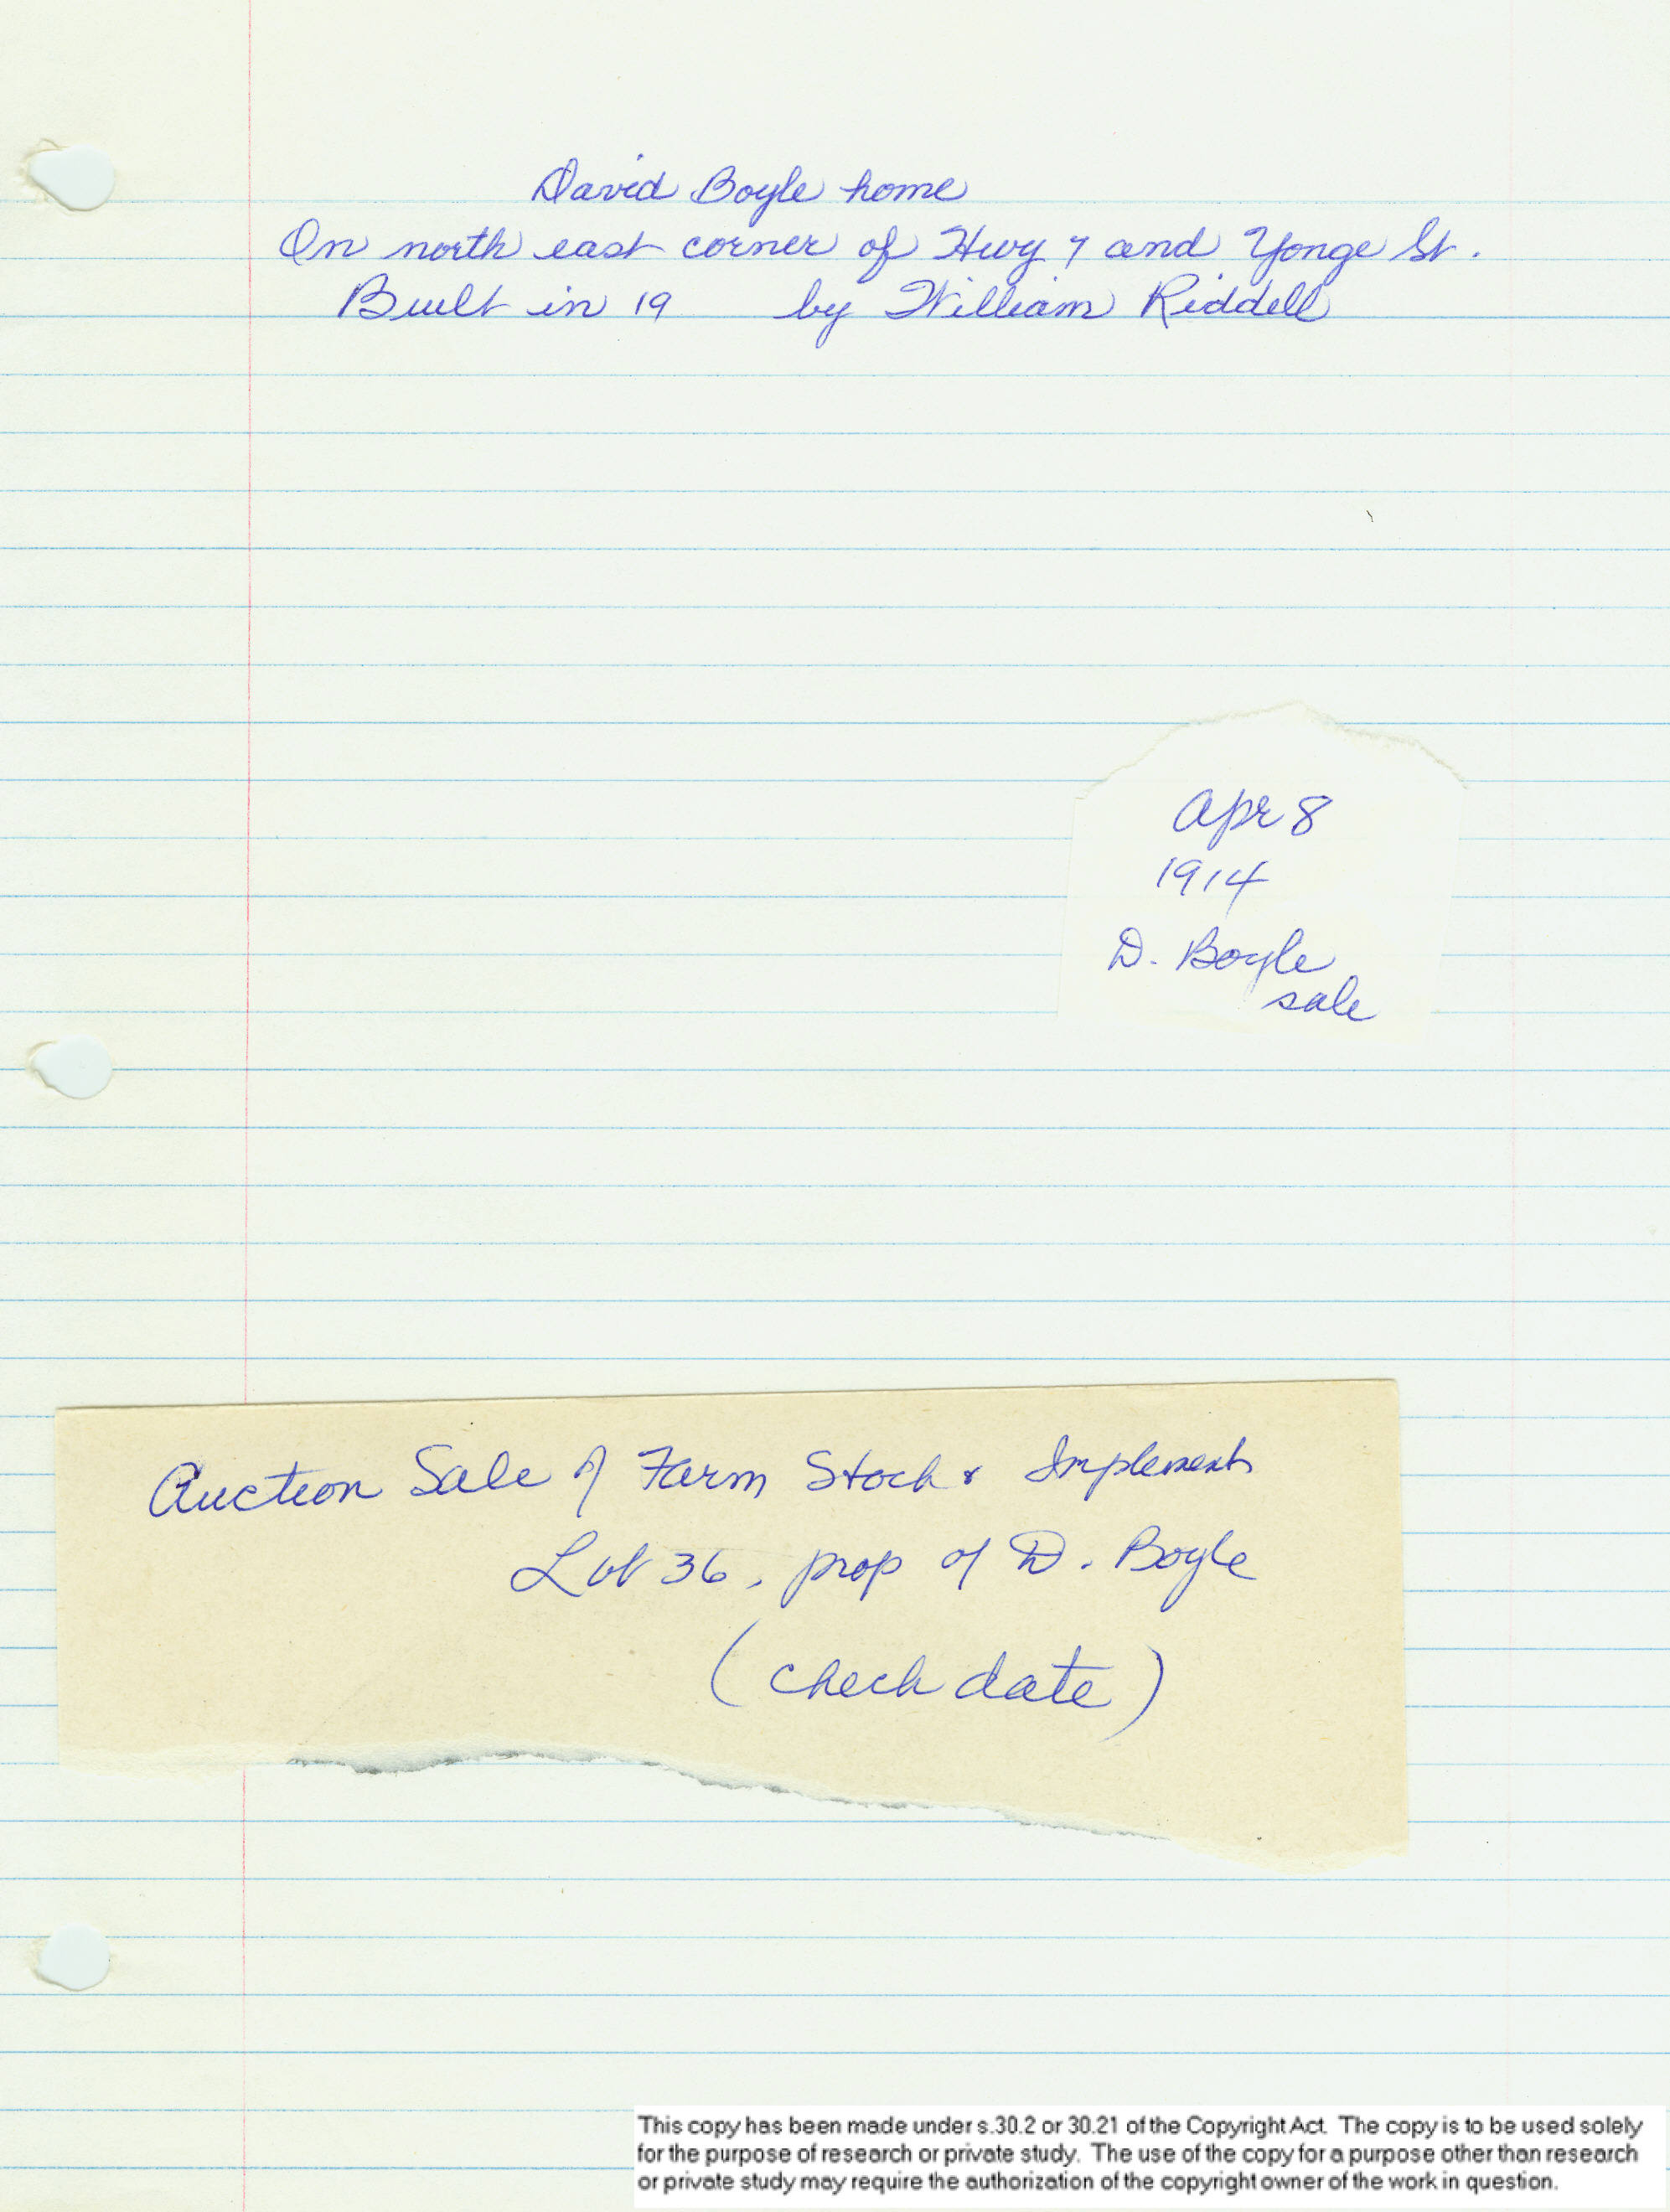 David Boyle home
On north east corner of Hwy 7 and Yonge St.
Built in 19 by William Riddell
Apr 8
1914
D. Boyle
sale
Auction Sale of Farm Stock & Implements
Lot 36, prop of D. Boyle
(check date)
This copy has been made under s.30.2 or 30.21 of the Copyright Act. The copy is to be used solely
for the purpose of research or private study. The use of the copy for a purpose other than research
or private study may require the authorization of the copyright owner of the work in question.